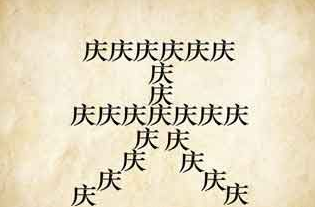 庆庆庆庆庆庆
庆
庆
庆庆庆庆庆庆庆
庆庆
庆庆
庆庆
庆庆